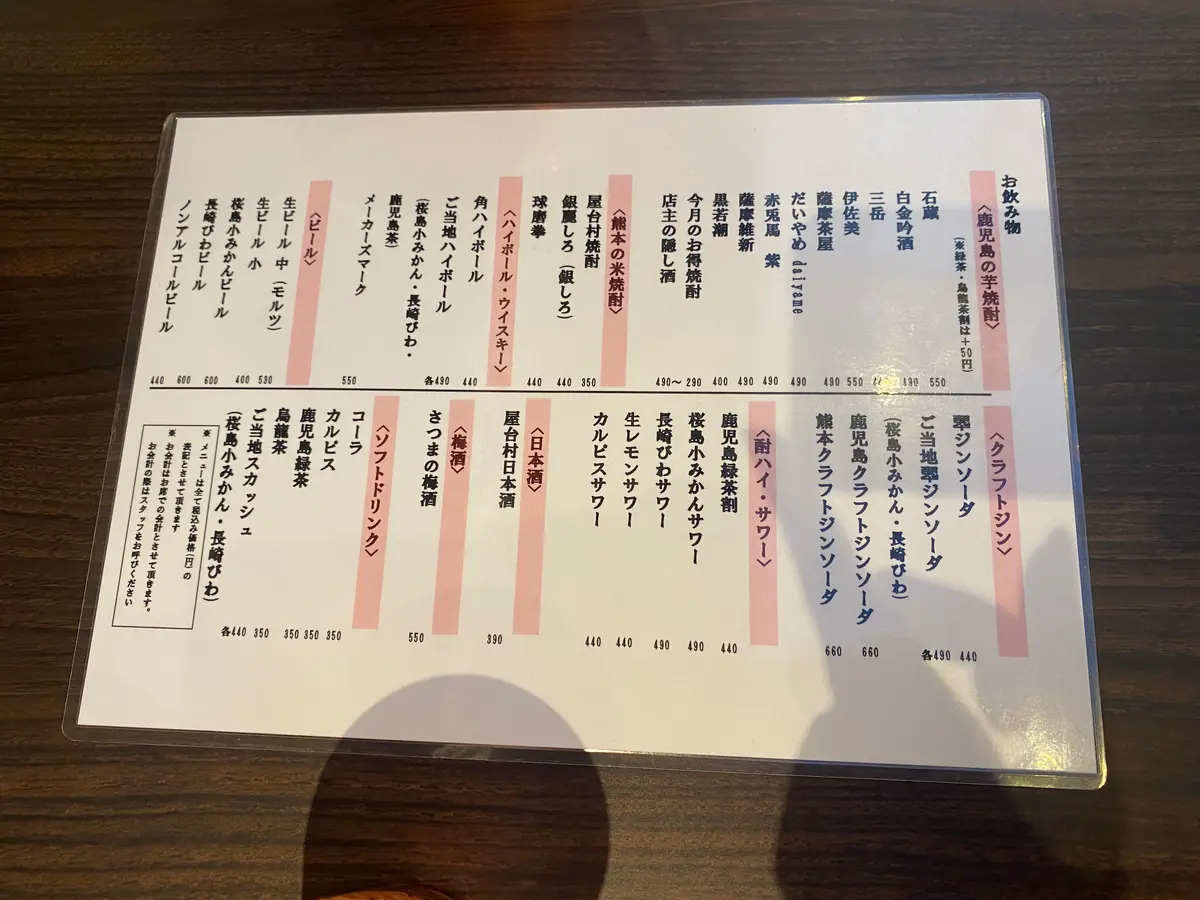 お飲み物
〈鹿児島の芋焼酎〉
(※緑茶・烏龍茶割は+50円)
石蔵 550
白金吟酒 490
三岳
伊佐美 550
薩摩茶屋 490
だいやめ daiyame 490
赤兎馬 紫 490
薩摩維新 490
黒若潮 400
今月のお得焼酎 290
店主の隠し酒 490〜
〈熊本の米焼酎〉
屋台村焼酎 350
銀麗しろ(銀しろ) 440
球磨拳 440
〈ハイボール・ウイスキー〉
角ハイボール 440
ご当地ハイボール 各490
(桜島小みかん・長崎びわ・
鹿児島茶)
メーカーズマーク 550
〈ビール〉
生ビール 中(モルツ) 530
生ビール 小 400
桜島小みかんビール 600
長崎びわビール 600
ノンアルコールビール 440
〈クラフトジン〉
翠ジンソーダ 440
ご当地翠ジンソーダ 各490
(桜島小みかん・長崎びわ)
鹿児島クラフトジンソーダ 660
熊本クラフトジンソーダ 660
〈酎ハイ・サワー〉
鹿児島緑茶割 440
桜島小みかんサワー 490
長崎びわサワー 490
生レモンサワー 440
カルピスサワー 440
〈日本酒〉
屋台村日本酒 390
〈梅酒〉
さつまの梅酒 550
〈ソフトドリンク〉
コーラ 350
カルピス 350
鹿児島緑茶 350
烏龍茶 350
ご当地スカッシュ 各440
(桜島小みかん・長崎びわ)
※ メニューは全て税込み価格(円)の
表記とさせて頂きます
※ お会計はお席での会計とさせて頂きます。
お会計の際はスタッフをお呼びください